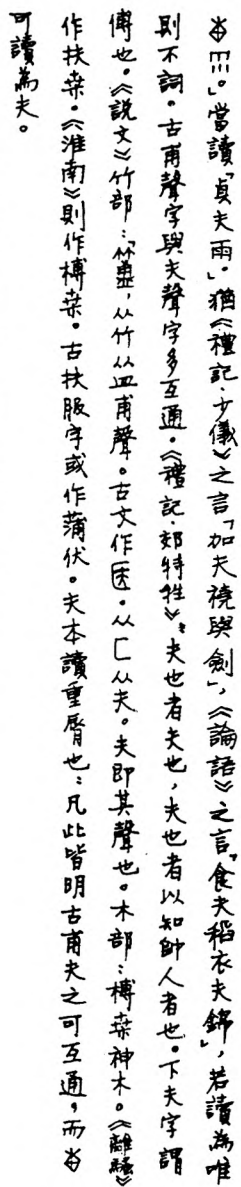 。」當讀「貞夫雨。」猶《禮記·少儀》之言「加夫襓與劍」,《論語》之言「食夫稻衣夫錦」,若讀為唯
則不詞。古甫聲字與夫聲字多互通。《禮記·郊特牲》:夫也者夫也,夫也者以知帥人者也。下夫字謂
傅也。《說文》竹部:「簠,从竹从皿甫聲。古文作医。从匚从夫。夫即其聲也。木部:榑桒神木。《離騷》
作扶桒。《淮南》則作榑桒。古扶服字或作蒲伏。夫本讀重脣也:凡此皆明古甫夫之可互通,而
可讀為夫。